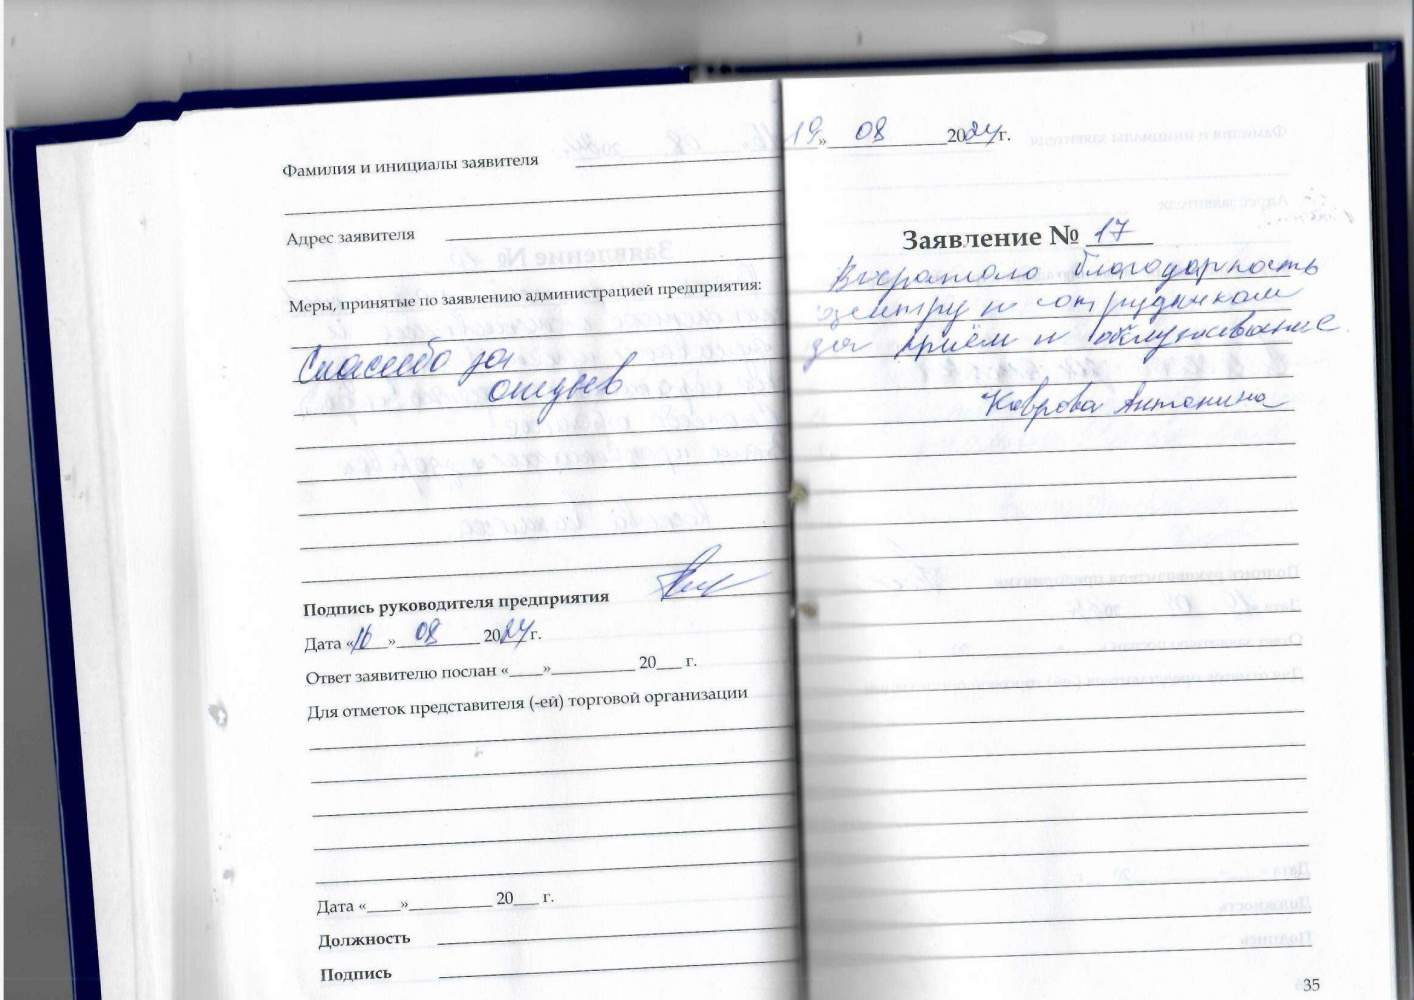 Фамилия и инициалы заявителя
Адрес заявителя
Меры, принятые по заявлению администрацией предприятия:
Спасибо за
отзыв
Подпись руководителя предприятия
Дата «16» 08 2024 г.
Ответ заявителю послан «____»__________ 20___ г.
Для отметок представителя (-ей) торговой организации
Дата «____»__________ 20___ г.
Должность
Подпись
19» 08 2024 г.
Заявление № 17
Выражаю благодарность
центру и сотрудникам
за приём и обслуживание.
Коврова Антонина
35